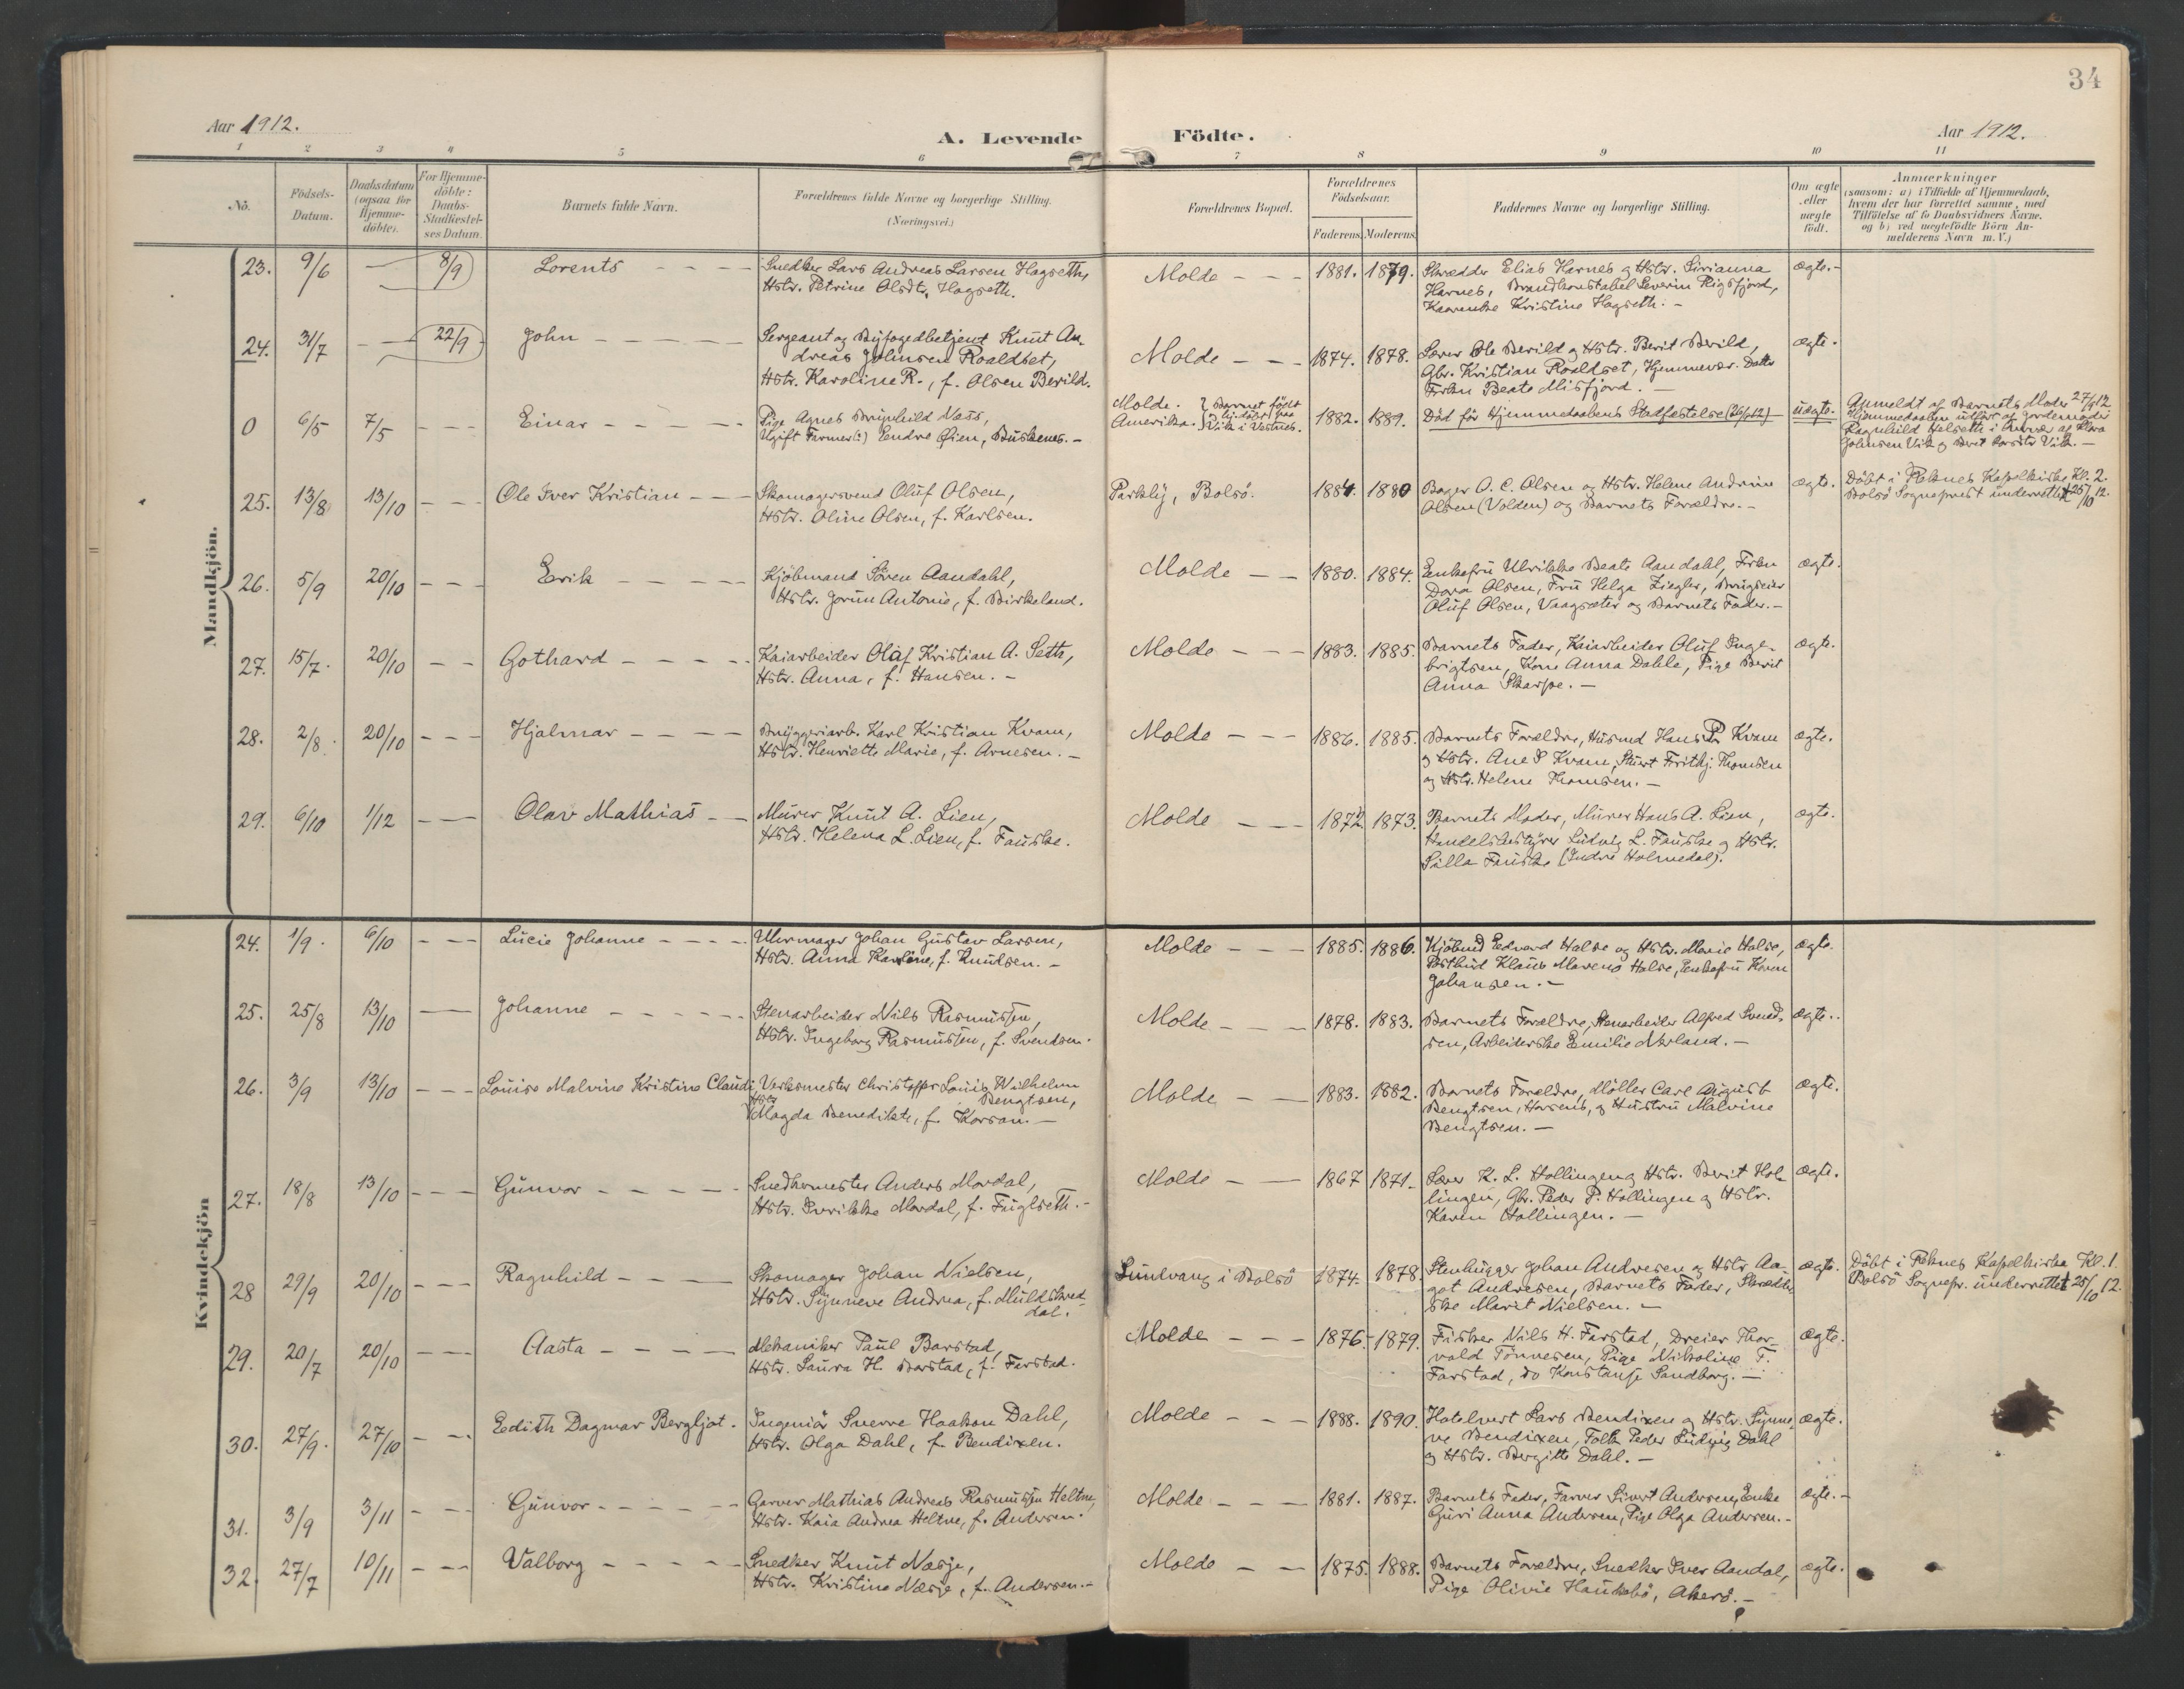 34
Aar 1912.
A. Levende Födte.
Aar 1912.
1 2 3 4 5 6 7 8 9 10 11
Nö.
Födsels-Datum.
Daabsdatum (ogsaa for Hjemme-döbte).
For Hjemme-döbte: Daabs-Stadfæstel-ses Datum.
Barnets fulde Navn.
Forældrenes fulde Navne og borgerlige Stilling.
(Næringsvei.)
Forældrenes Bopæl.
Forældrenes Födselsaar.
Faderens. Moderens.
Faddernes Navne og borgerlige Stilling.
Om ægte eller uægte födt.
Anmærkninger
(saasom: a) i Tilfælde af Hjemmedaab,
hvem der har forrettet samme, med
Tilföielse af to Daabsvidners Navne.
og b) ved uægtefödte Börn An-
melderens Navn m. V.)
Mandkjön.
23. 9/6 — 8/9 Lorents Snedker Lars Andreas Larsen Hagseth,
Hstr. Petrine Olsdtr. Hagseth.
Molde 1881. 1879. Skrædder Elias Harnes og Hstr. Sirianna
Harnes, Brandkonstabel Severin Rigsfjord,
Kristine Hagseth. —
ægte. —
24. 31/7 — 22/9 John Sergeant og Byfogedbetjent Knut An-
dreas Johnsen Roaldset,
Hstr. Karoline R., f. Olsen Berild.
Molde 1874. 1878. Lærer Ole Berild og Hstr. Berit Berild,
Gbr. Kristian Roaldset, Hjemmevær. Datter
Frkn Beate Misfjord. —
ægte.
0 6/5 7/5 Einar Pige Agnes Brynhild Næss,
Ugift Farmer(:) Endre Öien, Buskenes. —
Molde. } Barnet födt
Amerika. } Vik i Vestnes.
1882. 1889. Död för Hjemmedaabens Stadfæstelse (26/5 12) —
uægte.
Anmeldt af Barnets Moder 27/9 12
Hjemmedaaben utfört af Jordemoder
Ragnhild Helseth i Nærvær af Klara
Johnsen Vik og Berit Larsdtr Vik. —
25. 13/8 13/10 Ole Iver Kristian Skomagersvend Oluf Olsen,
Hstr. Oline Olsen, f. Karlsen.
Parkly, Bolsö. 1884. 1880 Bager O. C. Olsen og Hstr. Helene Andrine
Olsen (Volden) og Barnets Forældre. —
ægte.
Döbt i Reknes Kapelkirke Kl. 2.
Bolsö Sogneprest underrettet 25/10 12.
26. 5/9 20/10 Eerik Kjöbmand Sören Aandahl,
Hstr. Jorun Antonie, f. Birkeland.
Molde 1880. 1884. Enkefru Ulrikke Beate Aandahl, Frkn
Dora Olsen, Fru Helga Ziegler, Brugseier
Oluf Olsen, Vaagsæter og Barnets Fader. —
ægte.
27. 15/7. 20/10 Gothard Kaiarbeider Olaf Kristian A. Seth,
Hstr. Anna, f. Hansen. —
Molde 1883. 1885. Barnets Fader, Kaiarbeider Oluf Inge-
brigtsen, Kone Anna Dahle, Pige Berit
Anna Skarpe. —
ægte.
28. 2/8. 20/10 Hjalmar Bryggeriarb. Karl Kristian Kvam,
Hstr. Henriette Marie, f. Arnesen. —
Molde 1886. 1885. Barnets Forældre, Husmd Hans P. Kvam
og Hstr. Ane P Kvam, Frithj. Thomsen
og Hstr. Helene Thomsen. —
ægte.
29. 6/10 1/12 Olav Mathias Murer Knut A. Lien,
Hstr. Helena L. Lien, f. Fauske.
Molde 1872 1873. Barnets Moder, Murer Hans A. Lien,
Handelsbestyrer Ludvig L. Fauske og Hstr.
Salla Fauske (Indre Holmedal).
ægte.
Kvindekjön
24. 1/9. 6/10 Lucie Johanne Uhrmager Johan Gustav Larsen,
Hstr. Anna Karoline, f. Knudsen. —
Molde 1885. 1886. Kjöbmd Edvard Halse og Hstr. Marie Halse,
Postbud Klaus Mareno Halse, Enkefru Karen
Johansen. —
ægte.
25. 25/8 13/10 Johanne Stenarbeider Nils Rasmussen,
Hstr. Ingeborg Rasmussen, f. Svendsen.
Molde 1878. 1883. Barnets Forældre, Stenarbeider Alfred Svend-
sen, Arbeiderske Emilie Nerland. —
ægte.
26. 3/9 13/10 Louise Malvine Kristine Claudi Verksmester Christoffer Louis Wilhelm
Bengtsen,
Hstr. Magda Benedikte, f. Korson. —
Molde 1883. 1882. Barnets Forældre, Möller Carl August
Bengtsen, Horsens, og Hustru Malvine
Bengtsen. —
ægte.
27. 18/8 13/10 Gunvor Snedkermester Anders Mordal,
Hstr. Mordal, f. Fuglseth. —
Molde 1867 1871. Lærer K. L. Hollingen og Hstr. Berit Hol-
lingen, Gbr. Peder P. Hollingen og Hstr.
Karen Hollingen. —
ægte.
28 29/9 20/10 Ragnhild Skomager Johan Nielsen,
Hstr. Synneve Andrea, f. Muldskred-
dal.
Lundvang i Bolsö 1874. 1878. Stenhugger Johan Andresen og Hstr Aa-
got Andresen, Barnets Fader, Skrædder-
ske Marit Nielsen. —
ægte.
Döbt i Reknes Kapelkirke Kl. 1.
Bolsö Sognepr. underrettet 25/10 12.
29. 20/7 20/10 Aasta Mekaniker Paul Barstad,
Hstr. Laura H. Barstad, f. Farstad.
Molde 1876. 1879. Fisker Nils H. Farstad, Dreier Thor-
vald Tönnesen, Pige Nikoline T.
Farstad, do Konstanse Sandborg. —
ægte.
30. 27/9. 27/10 Edith Dagmar Bergljot. Ingeniör Sverre Haakon Dahl,
Hstr. Olga Dahl, f. Bendixen.
Molde 1888. 1890. Hotelvert Lars Bendixen og Hstr. Synne-
ve Bendixen, Tolk Peder Ludvig Dahl
og Hstr. Bergitte Dahl. —
ægte.
31. 3/9 3/11 Gunvor Garver Mathias Andreas Rasmussen Heltne,
Hstr. Kaia Andrea Heltne, f. Andersen.
Molde 1881. 1887. Barnets Fader, Farver Sivert Andersen, Enke
Guri Anna Andersen, Pige Olga Andersen. —
ægte. —
32. 27/7 10/11 Valborg Snedker Knut Næsje,
Hstr. Kristine Næsje, f. Andersen. —
Molde 1875. 1888. Barnets Forældre, Snedker Iver Aandal,
Pige Olivie Haukebö, Akerö. —
ægte.